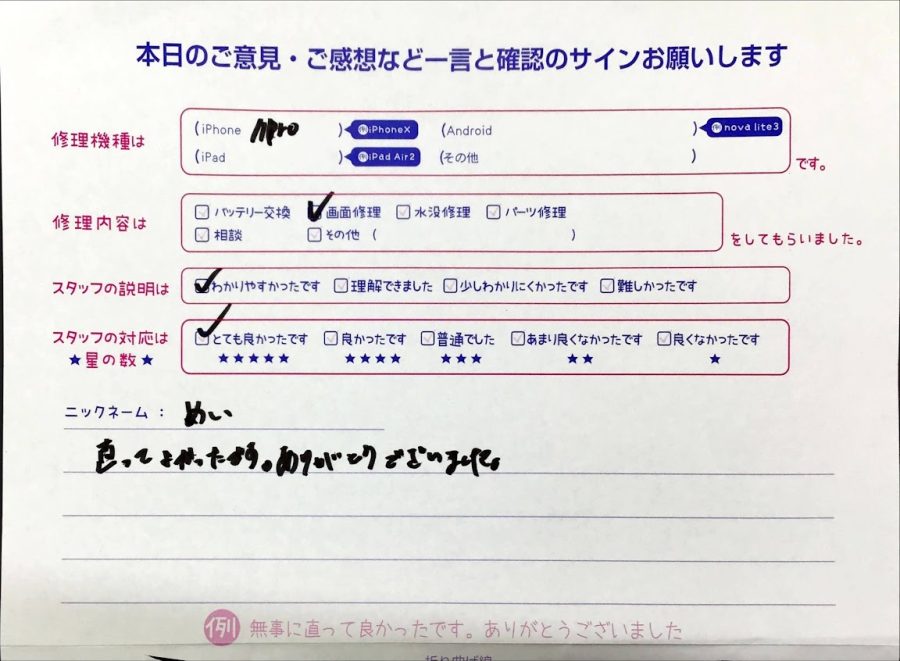 本日のご意見・ご感想など一言と確認のサインお願いします
修理機種は (iPhone 11pro ) 例iPhoneX (Android ) 例nova lite3
(iPad ) 例iPad Air2 (その他 ) です。
修理内容は バッテリー交換 画面修理 水没修理 パーツ修理
相談 その他 ( ) をしてもらいました。
スタッフの説明は わかりやすかったです 理解できました 少しわかりにくかったです 難しかったです
スタッフの対応は とても良かったです 良かったです 普通でした あまり良くなかったです 良くなかったです
★星の数★ ★★★★★ ★★★★ ★★★ ★★ ★
ニックネーム: めい
直ってよかったです。ありがとうございました。
例 無事に直って良かったです。ありがとうございました